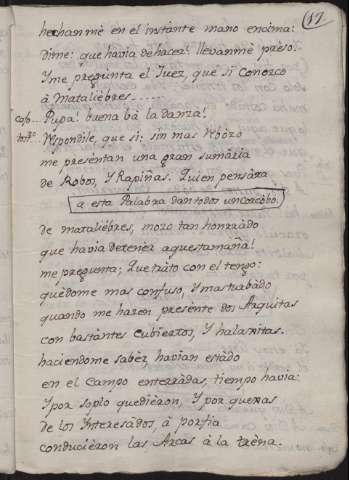 17
hechanme en el instante mano encima:
Dime: que havia de hacer! llevanme preso.
Y me pregunta el Juez, que si conozco
à Mataliebres.....
Pupa! buena bà la danza!
Respondile, que si: sin mas rebozo
me presentan una gran sumaria
de Robos, y Rapiñas. Quien pensàra
a esta Palabra dan todos un corcobo.
de mataliebres, mozo tan honrrado
que havia de tener aquesta maña!
me pregunta; Que trato con el tengo:
quedome mas confuso, y mas turbado
quando me hazen presente dos Arquitas
con bastantes cubiertos, Y halaxitas.
haciendome saber, havian estado
en el campo enterradas, tiempo havia:
Y por soplo que dieron, Y por quexas
de los Interesados, à porfia
conducieron las Arcas à la trena.